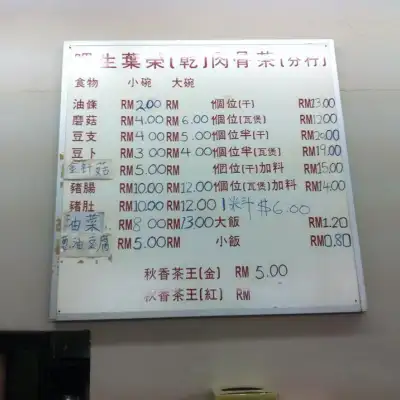 生葉榮(乾)肉骨茶(分行)
食物 小碗 大碗
油條 RM 2.00 RM 1個位(干) RM13.00
磨菇 RM 4.00 RM 6.00 1個位(瓦煲) RM12.00
豆支 RM 4.00 RM 5.00 1個位半(干) RM20.00
豆卜 RM 3.00 RM 4.00 1個位半(瓦煲) RM19.00
金針菇 RM 5.00 RM 1個位(干)加料 RM15.00
豬腸 RM 10.00 RM 12.00 1個位(瓦煲)加料 RM14.00
豬肚 RM 10.00 RM 12.00 1料 $6.00
油菜 RM 8.00 RM 13.00 大飯 RM1.20
蔥油豆腐 RM 5.00 RM 小飯 RM0.80
秋香茶王(金) RM 5.00
秋香茶王(紅) RM